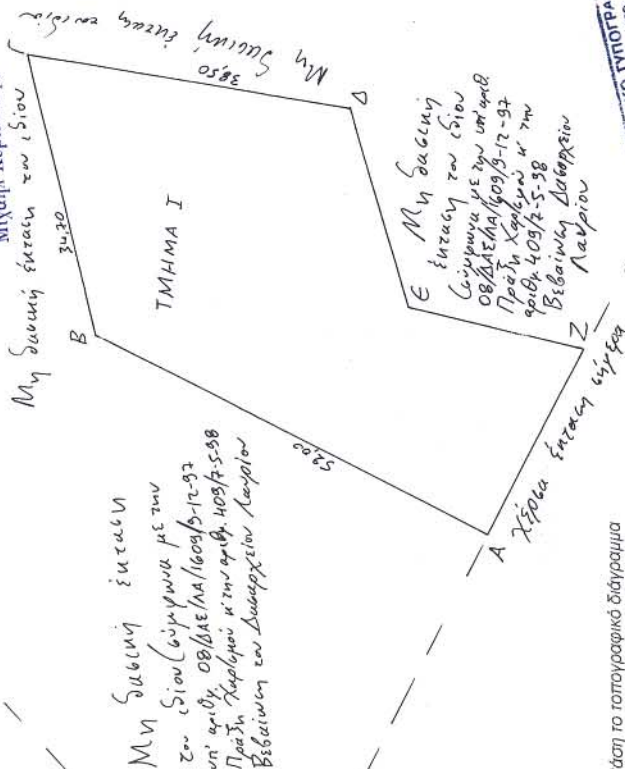 Μη δασική έκταση του ιδίου
34,70
Μη δασική έκταση του ιδίου
38,50
Β
Δ
ΤΜΗΜΑ Ι
Ε
Μη δασική
έκταση του ιδίου
(σύμφωνα με την υπ' αριθ.
08/ΔΑΣ/ΛΑ/1609/9-12-97
Πράξη Χαρ/σμού κ' την
αριθμ. 409/7-5-98
Βεβαίωση Δασαρχείου
Λαυρίου
Μη δασική έκταση
του ιδίου (σύμφωνα με την
υπ' αριθμ. 08/ΔΑΣ/ΛΑ/1609/9-12-97
Πράξη Χαρ/σμού κ' την αριθμ. 409/7-5-98
Βεβαίωση του Δασαρχείου Λαυρίου
52,00
Α
Ζ
Χέρσα έκταση σήμερα
άση το τοπογραφικό διάγραμμα
ΤΥΠΟΓΡΑ